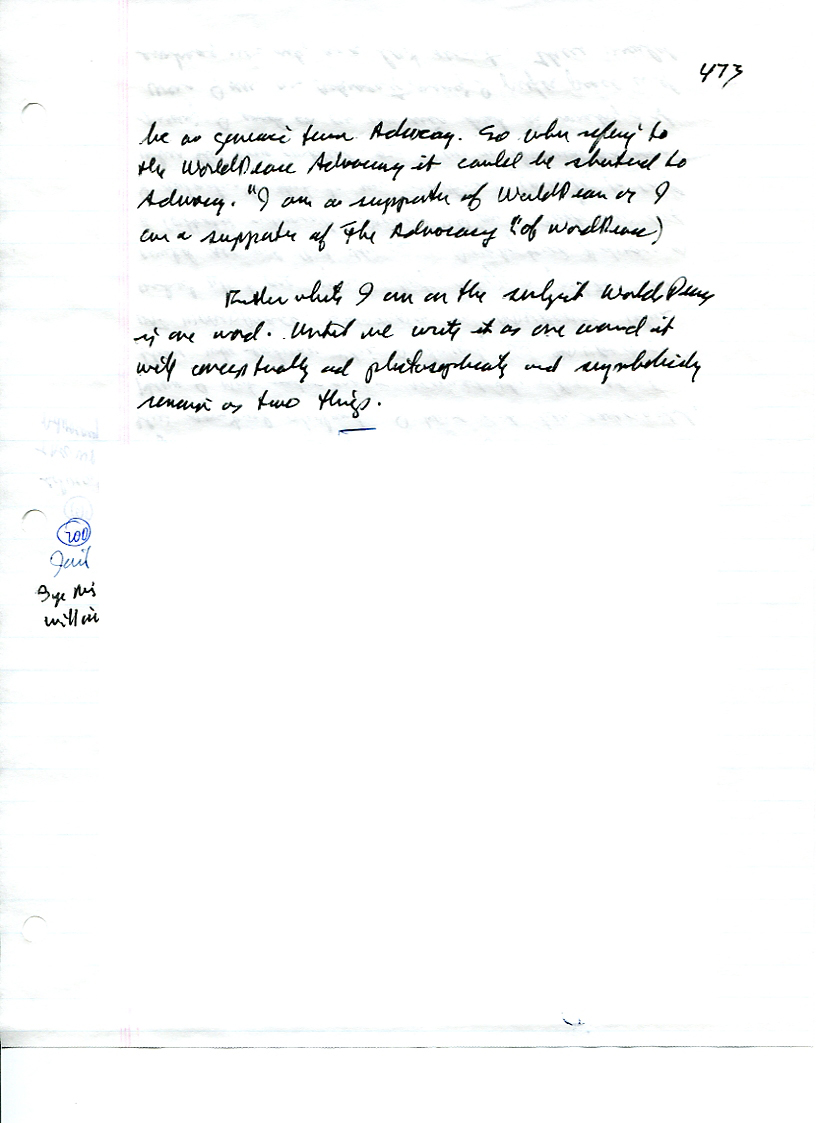 473
be as generic term Advocacy. So when refering to
the WorldPeace Advocacy it could be shorted to
Advocacy. "I am a supporter of WorldPeace or I
am a supporter of The Advocacy "(of WorldPeace)
Further while I am on the subject WorldPeace
is one word. Until we write it as one word it
will conceptually and philosophically and symbolicly
remain as two things.
200
Jail